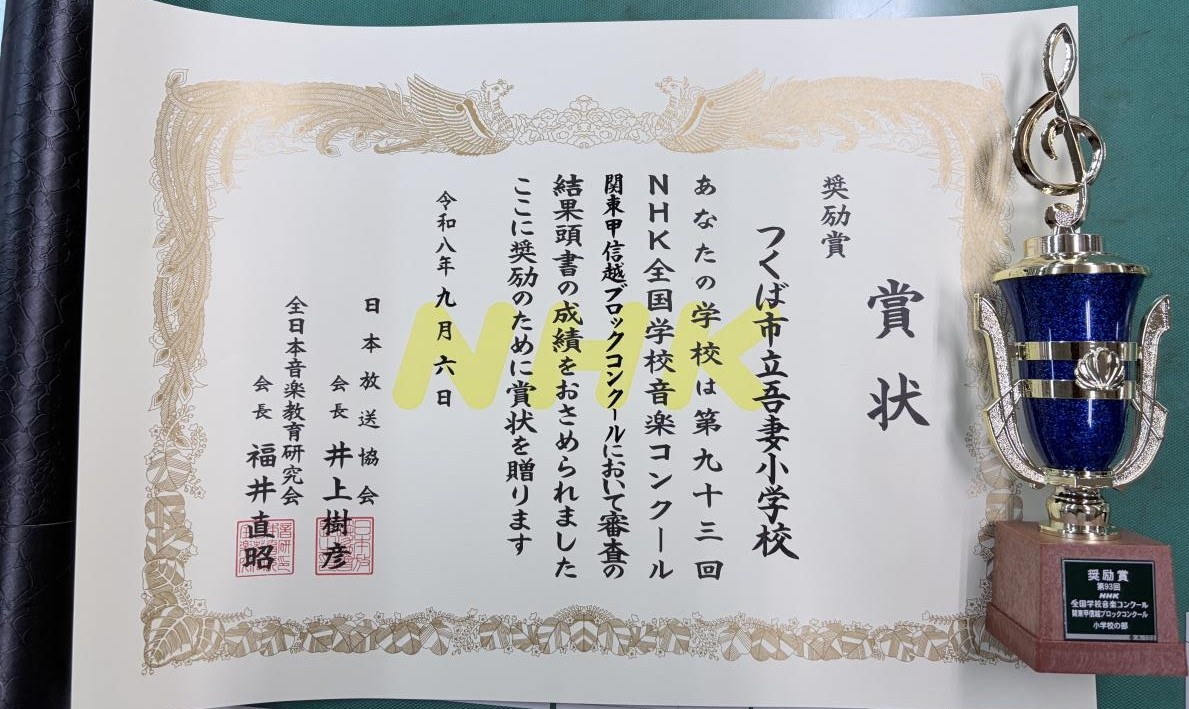 賞状
奨励賞
つくば市立吾妻小学校
あなたの学校は第九十三回
NHK全国学校音楽コンクール
関東甲信越ブロックコンクールにおいて審査の
結果頭書の成績をおさめられました
ここに奨励のために賞状を贈ります
令和八年九月六日
日本放送協会
会長 井上樹彦
全日本音楽教育研究会
会長 福井直昭
NHK
奨励賞
第93回
NHK
全国学校音楽コンクール
関東甲信越ブロックコンクール
小学校の部